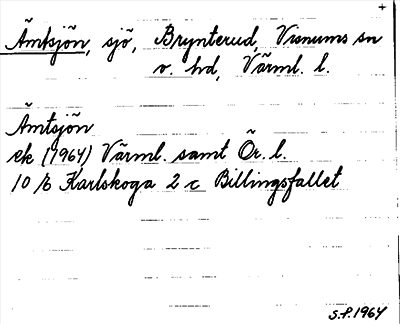 +
Ämtsjön, sjö, Brynterud, Visnums sn
v. hd, Värml. l.
Ämtsjön
ek (1964) Värml. samt Ör. l.
10 E Karlskoga 2 c Billingsfallet
S.P. 1964